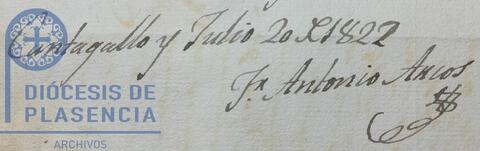 Cantagallo y Julio 20 de 1822
Fr. Antonio Arcos
DIÓCESIS DE
PLASENCIA
ARCHIVOS